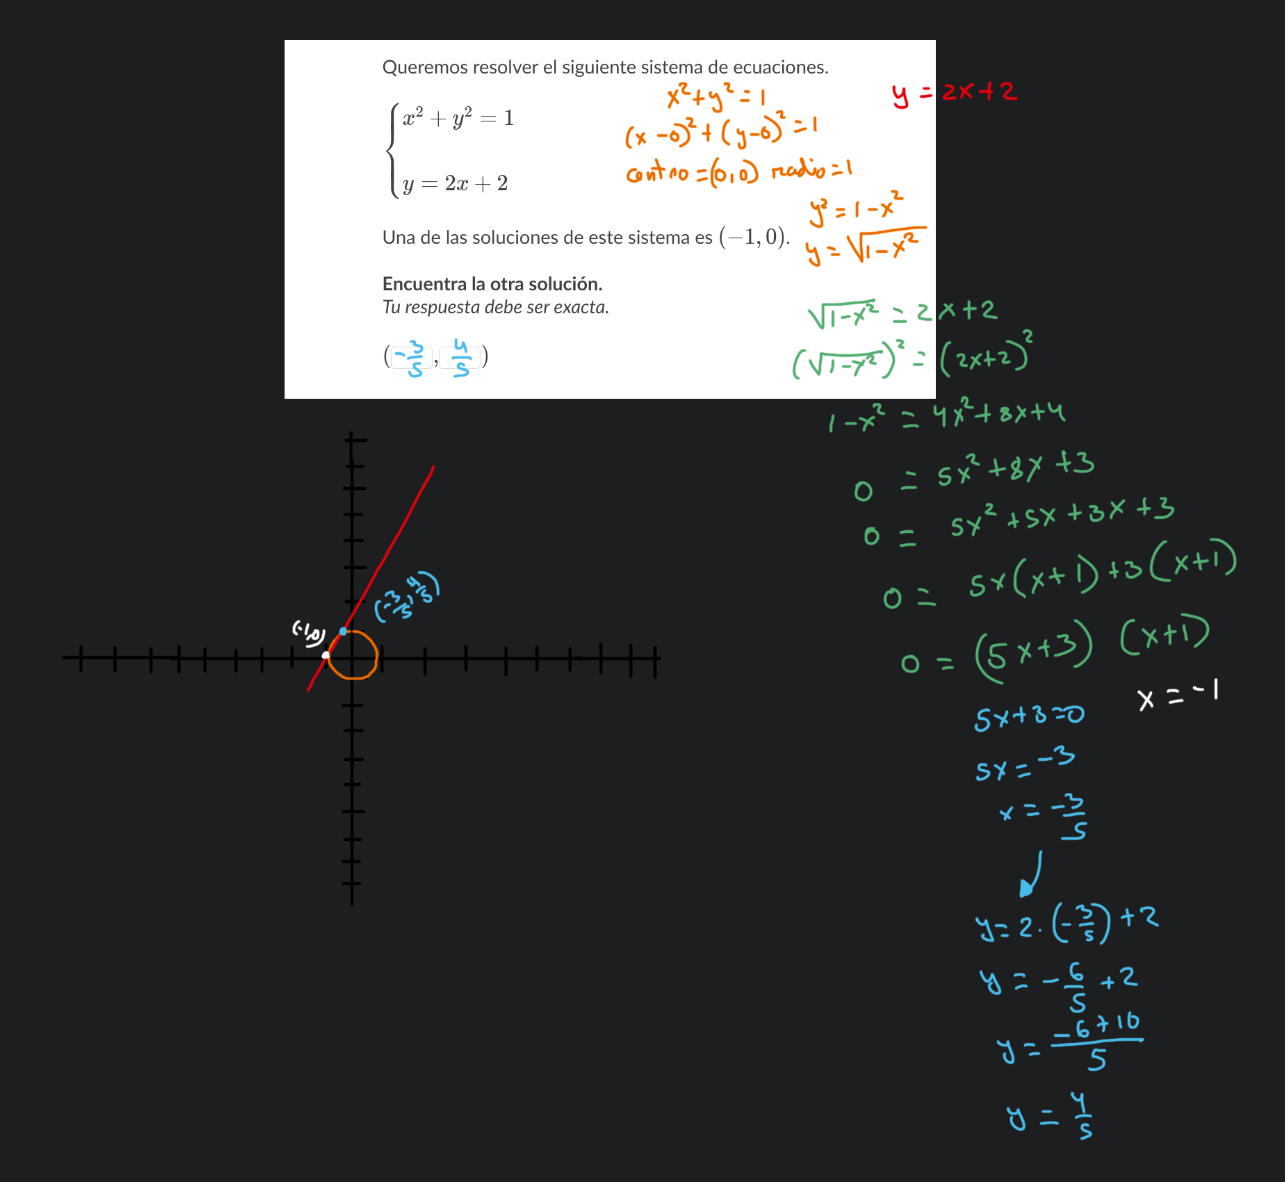 Queremos resolver el siguiente sistema de ecuaciones.
x² + y² = 1
y = 2x + 2
Una de las soluciones de este sistema es (−1, 0).
Encuentra la otra solución.
Tu respuesta debe ser exacta.
(-3/5, 4/5)
x²+y²=1
(x-0)²+(y-0)²=1
centro=(0,0) radio=1
y²=1-x²
y=√(1-x²)
y=2x+2
√(1-x²)=2x+2
(√(1-x²))²=(2x+2)²
1-x²=4x²+8x+4
0=5x²+8x+3
0=5x²+5x+3x+3
0=5x(x+1)+3(x+1)
0=(5x+3)(x+1)
5x+3=0
x=-1
5x=-3
x=-3/5
y=2·(-3/5)+2
y=-6/5+2
y=(-6+10)/5
y=4/5
(-3/5, 4/5)
(-1,0)